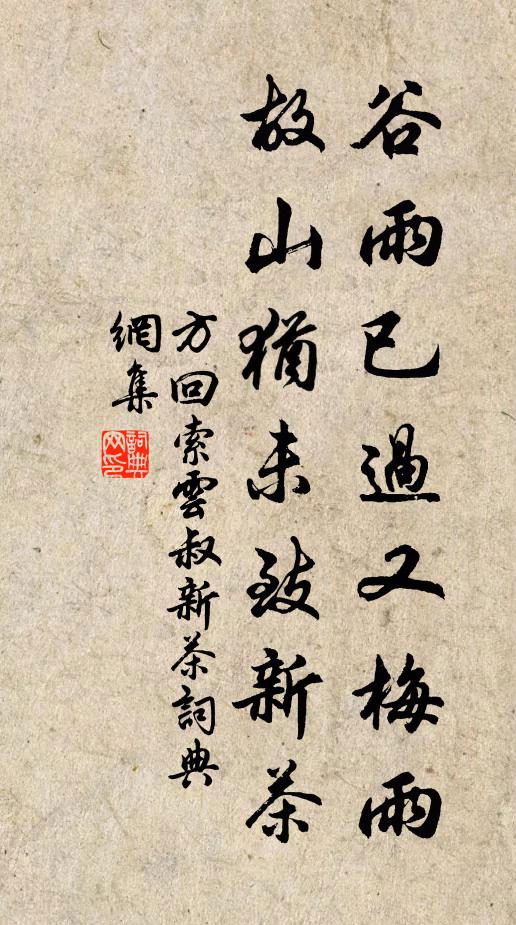 谷雨已過又梅雨
故山猶未致新茶
方回索雲叔新茶詞典
網集
詞典
网印